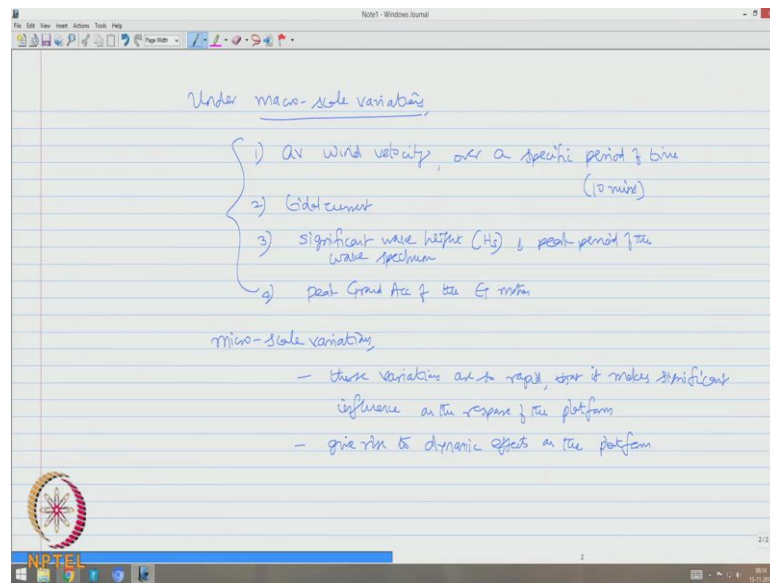 Note1 - Windows Journal
File Edit View Insert Actions Tools Help
Page Width
Under macro-scale variations,
1) av wind velocity, over a specific period of time
(10 mins)
2) tidal current
3) significant wave height (Hs) & peak period of the
wave spectrum
4) peak Ground Acc of the motion
micro-scale variations,
- these variations are so rapid, that it makes significant
influence on the response of the platform
- give rise to dynamic effects on the platform
NPTEL
2/2
2